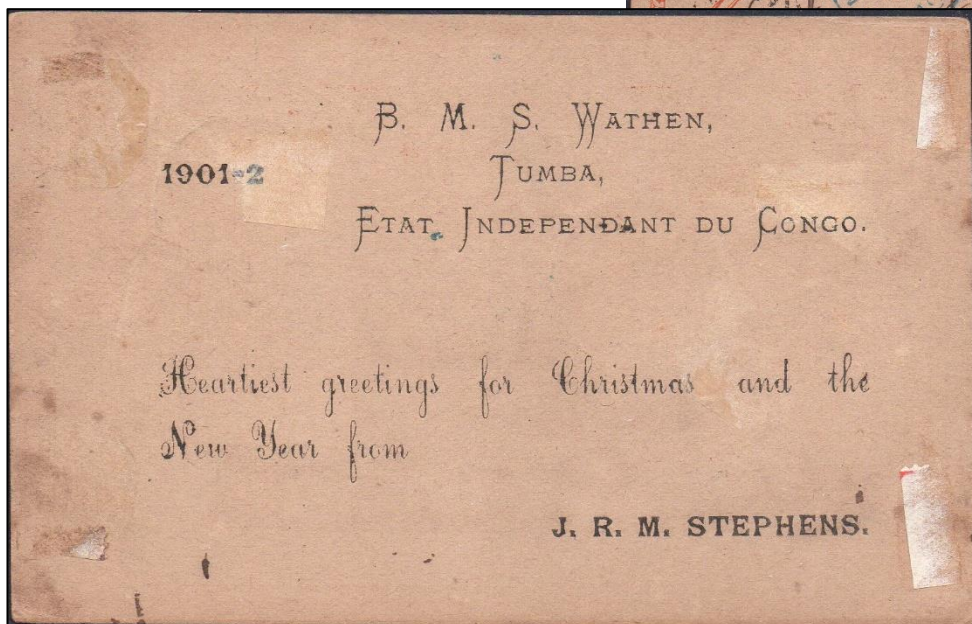 B. M. S. WATHEN,
1901-2 TUMBA,
ETAT INDEPENDANT DU CONGO.
Heartiest greetings for Christmas and the
New Year from
J. R. M. STEPHENS.